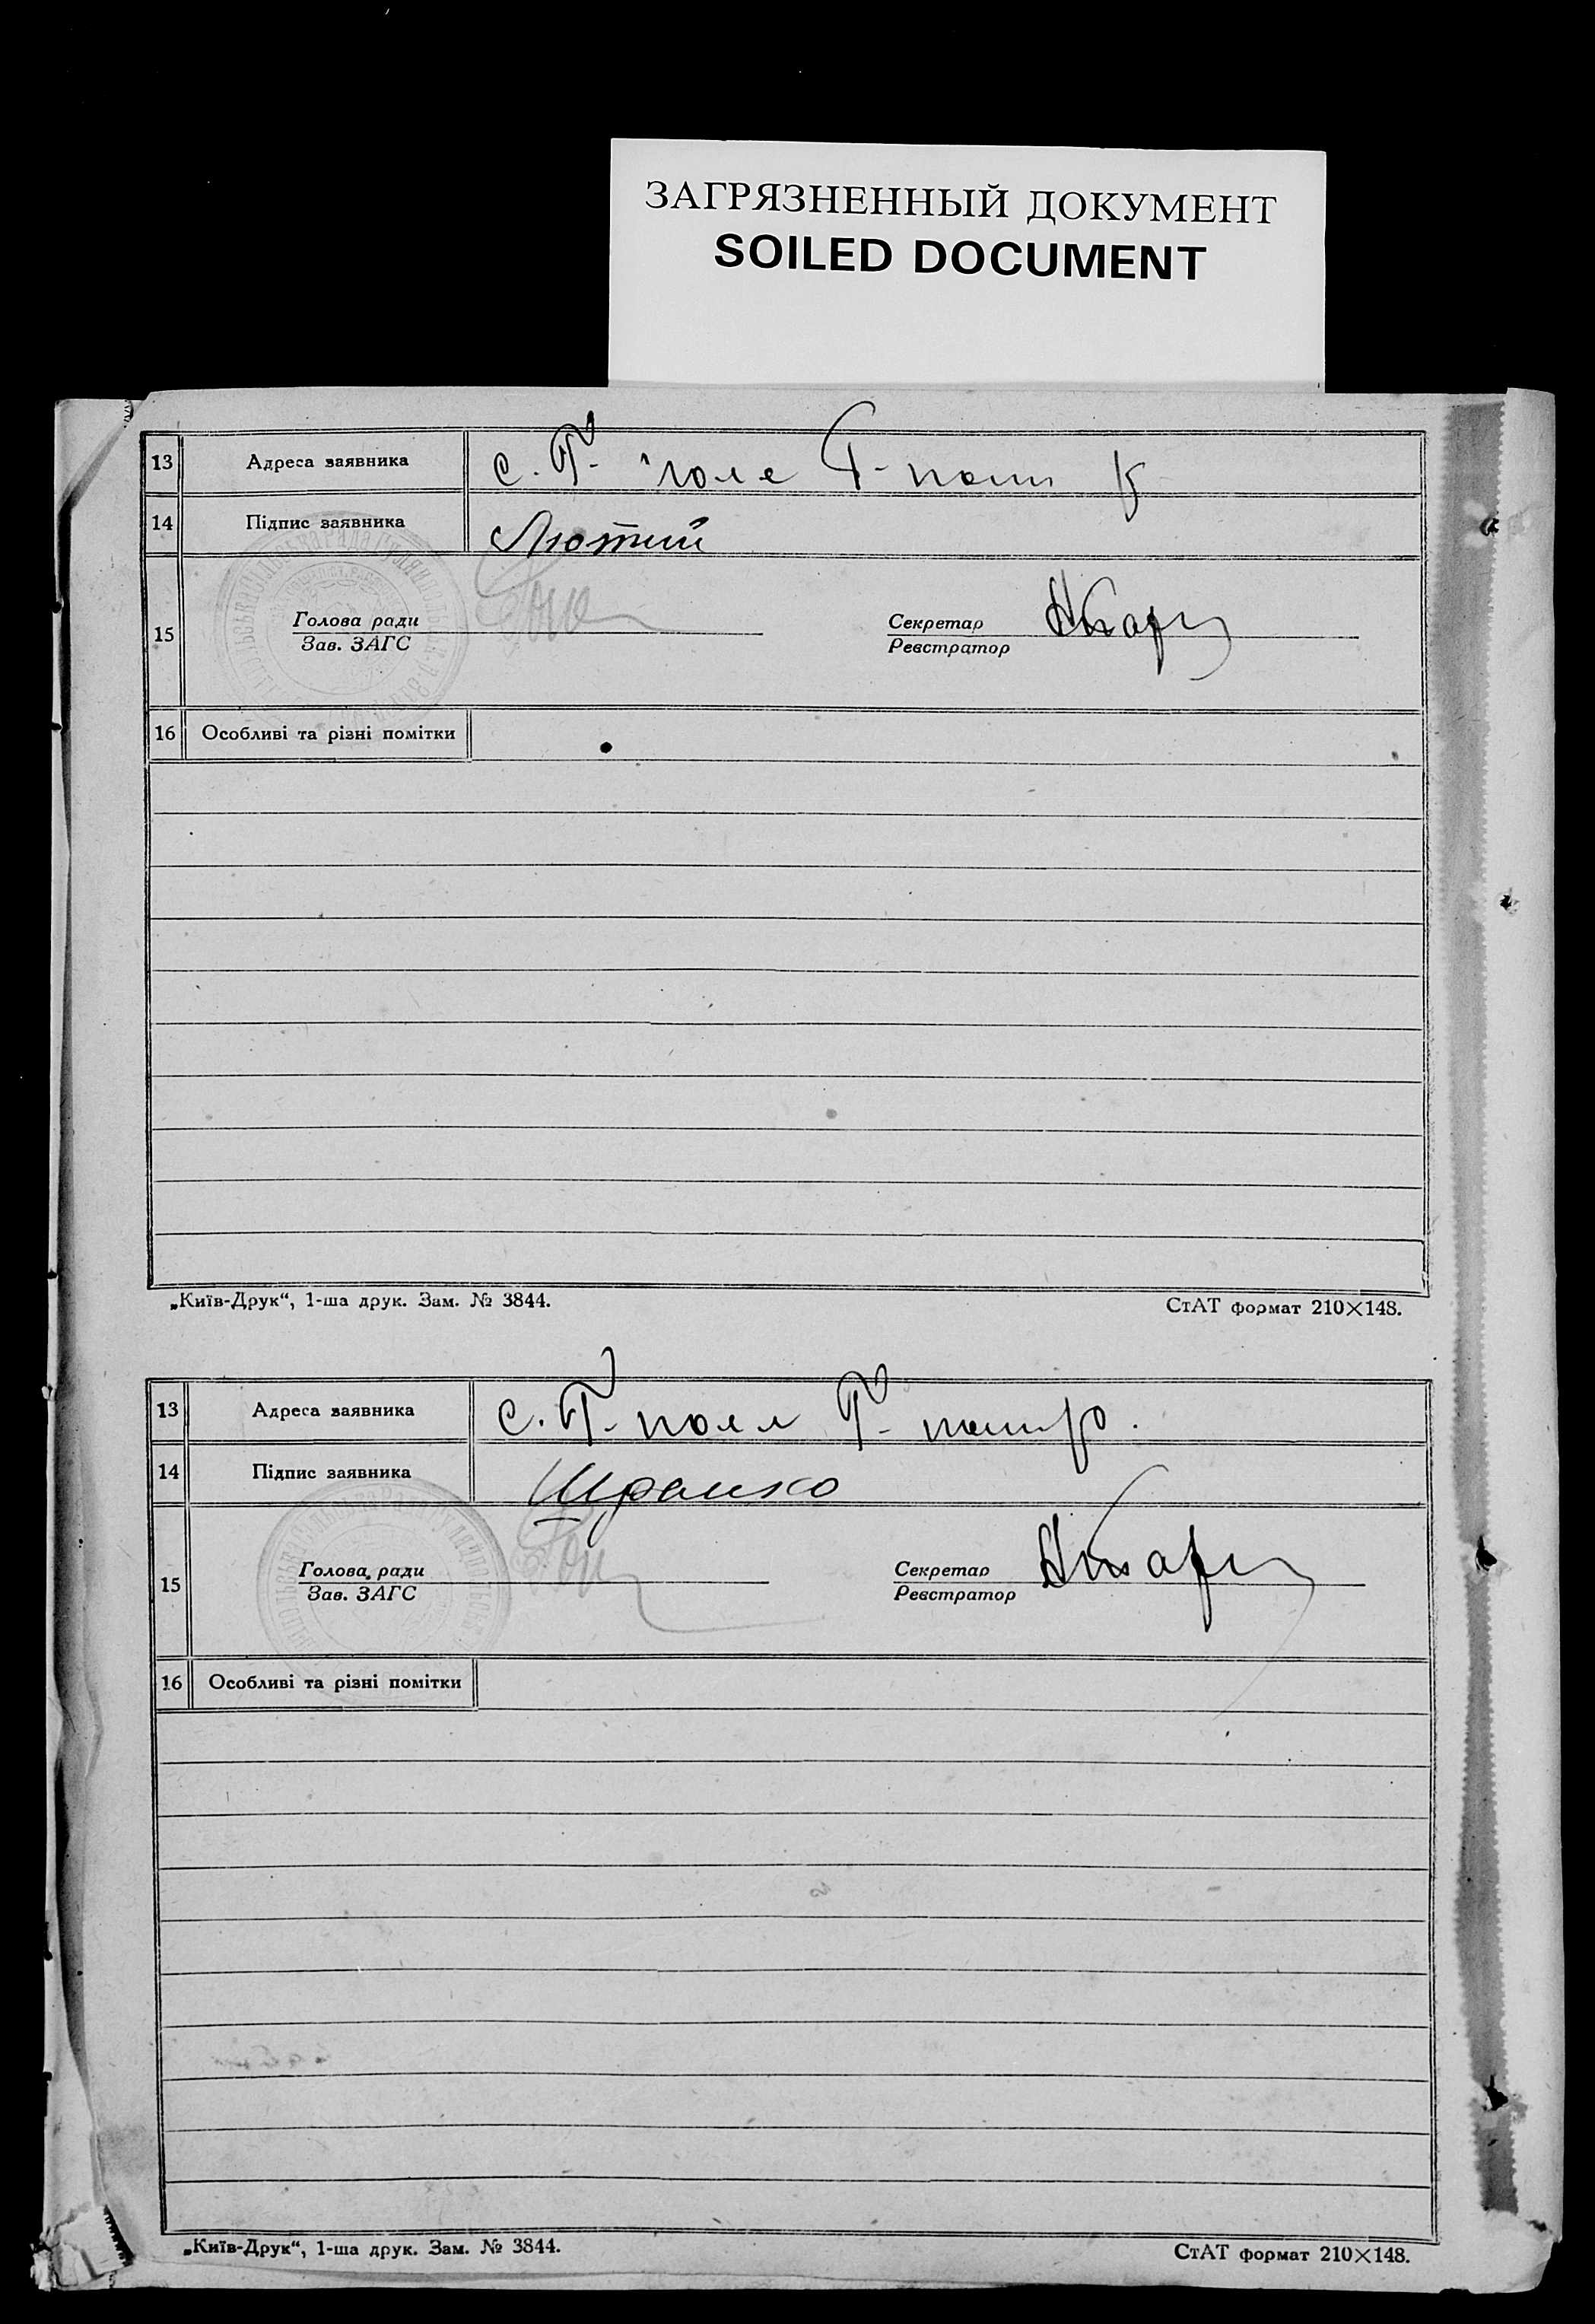 ЗАГРЯЗНЕННЫЙ ДОКУМЕНТ
SOILED DOCUMENT
13 Адреса заявника с. Г- поле Г-
14 Підпис заявника Лютий
15 Голова ради Секретар
Зав. ЗАГС Реєстратор
16 Особливі та різні помітки
„Київ-Друк“, 1-ша друк. Зам. № 3844. СтАТ формат 210×148.
13 Адреса заявника с. Г- поле Г-
14 Підпис заявника Шрамко
15 Голова ради Секретар
Зав. ЗАГС Реєстратор
16 Особливі та різні помітки
„Київ-Друк“, 1-ша друк. Зам. № 3844. СтАТ формат 210×148.